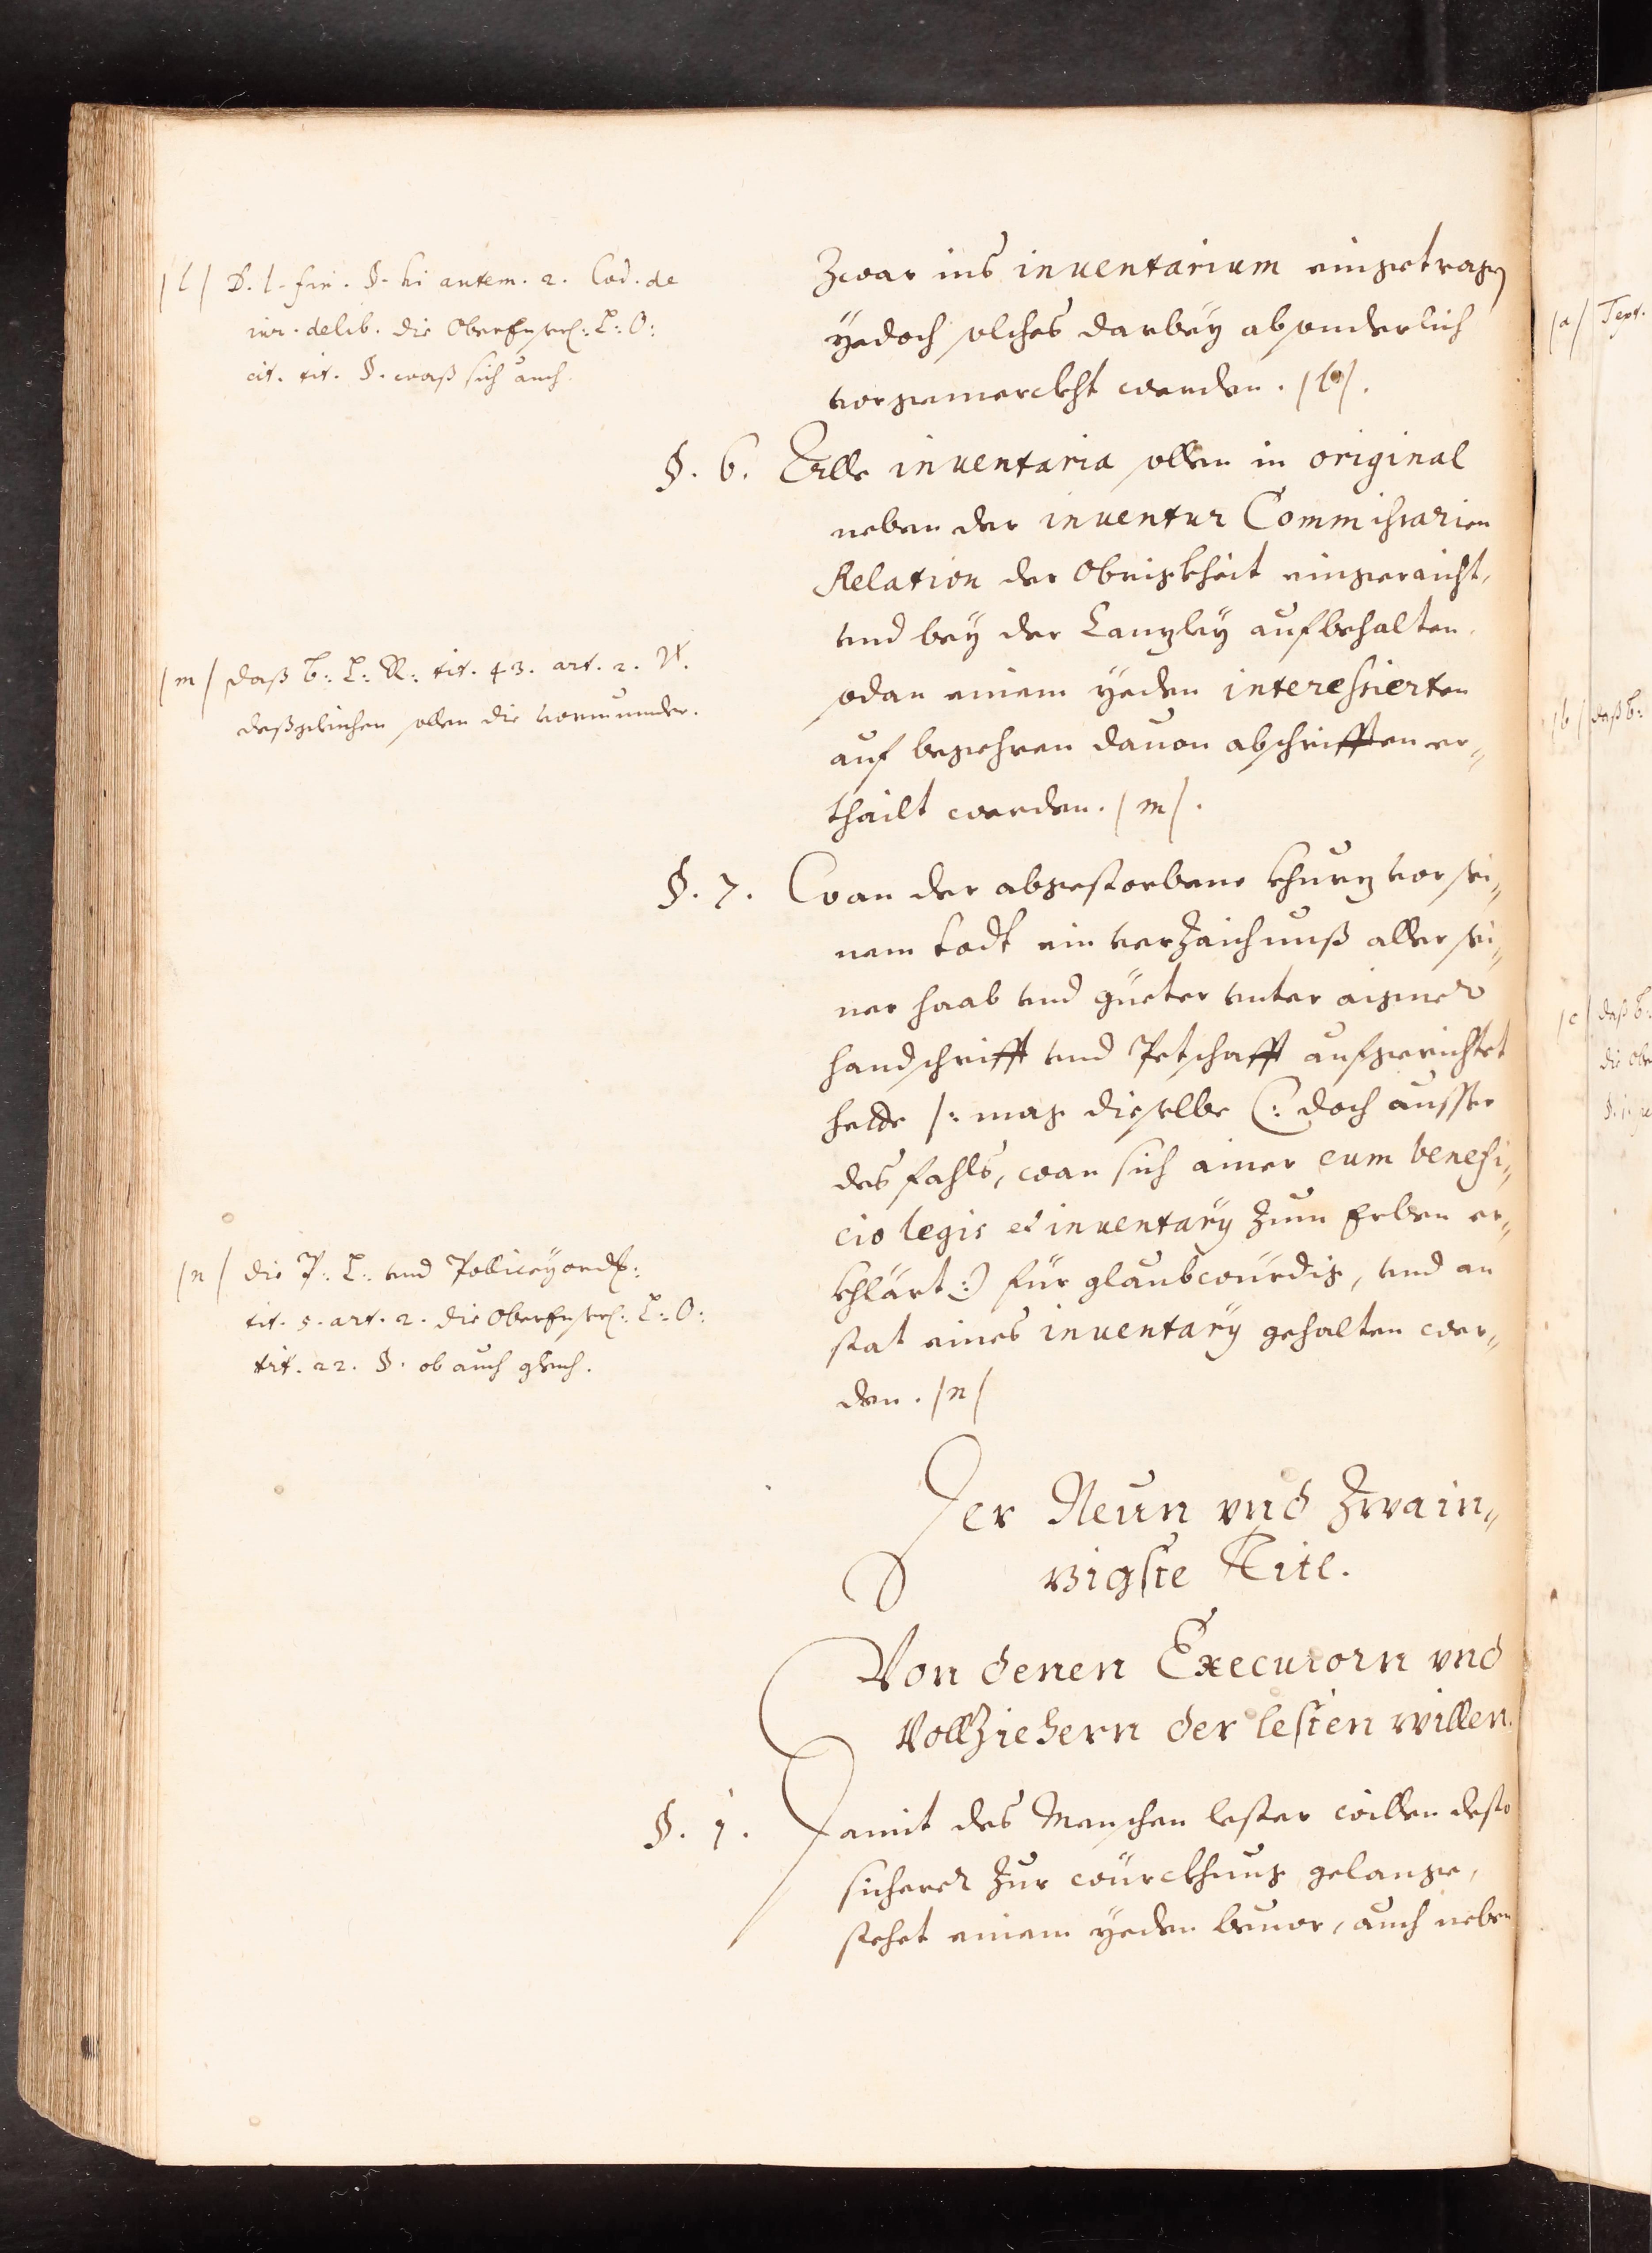 zwar ins inuentarium eingetragen
yedoch solches darbey absonderlich
vorgemerckht werden. /l/.
/l/ D. l. fin. §. hi autem. 2. Cod. de
iur. delib. die L: O:
cit. tit. §. waß sich auch
§. 6. Alle inuentaria sollen in original
neben der inuentur Commissarien
Relation der Obrigkheit eingeraicht,
vnd bey der Canzley aufbehalten,
sodan einem yeden interessierten
auf begehren dauon abschrifften er„
thailt werden. /m/.
/m/ daß b: L: R: tit. 43. art. 2. V.
deßgleichen sollen die vormunder.
§. 7. Wan der abgestorbene khurz vor sei„
nem todt ein verzaichnuß aller sei„
ner haab vnd güeter vnter aigner
handschrifft vnd Petschafft aufgerichtet
hette /: mag dieselbe (: doch ausser
des fahls, wan sich ainer cum benefi„
cio legis et inuentarÿ zum Erben er„
khlärt :) für glaubwürdig, vnd an
stat eines inuentarÿ gehalten wer„
den. /n/
/n/ die P: L: vnd Policeyordt:
tit. 5. art. 2. die L: O:
tit. 22. §. ob auch gleich.
Der Neun vnd Zwain„
zigste Titl.
Von denen Executorn vnd
Vollziehern der lesten willen.
§. 1. Damit des Menschen lester willen desto
sicherer zur würckhung gelange,
stehet einem yeden beuor, auch neben
/a/ Text.
/b/ daß b:
/c/ daß b: